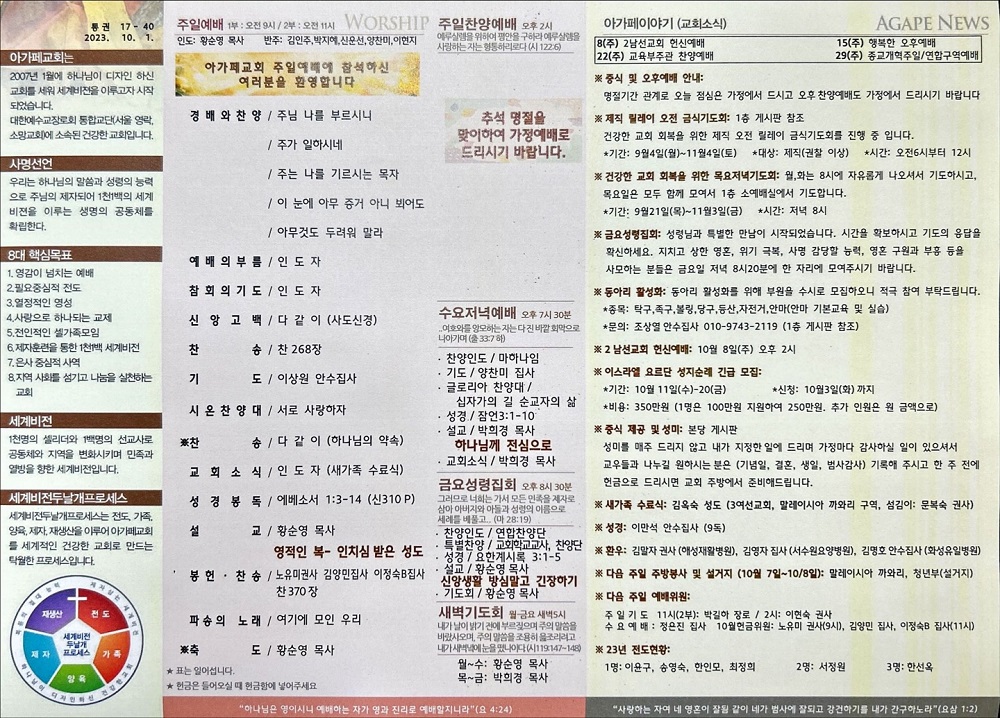 통권 17 - 40
2023. 10. 1.
아가페교회는
2007년 1월에 하나님이 디자인 하신
교회를 세워 세계비전을 이루고자 시작
되었습니다.
대한예수교장로회 통합교단(서울 영락,
소망교회)에 소속된 건강한 교회입니다.
사명선언
우리는 하나님의 말씀과 성령의 능력
으로 주님의 제자되어 1천1백의 세계
비전을 이루는 생명의 공동체를
확립한다.
8대 핵심목표
1. 영감이 넘치는 예배
2.필요중심적 전도
3.열정적인 영성
4.사랑으로 하나되는 교제
5.전인적인 셀가족모임
6.제자훈련을 통한 1천1백 세계비전
7.은사 중심적 사역
8.지역 사회를 섬기고 나눔을 실천하는
교회
세계비전
1천명의 셀리더와 1백명의 선교사로
공동체와 지역을 변화시키며 민족과
열방을 향한 세계비전입니다.
세계비전두날개프로세스
세계비전두날개프로세스는 전도, 가족,
양육, 제자, 재생산을 이루어 아가페교회
를 세계적인 건강한 교회로 만드는
탁월한 프로세스입니다.
재생산
전 도
세계비전
두날개
프로세스
제 자
가 족
양 육
주일예배 1부 : 오전 9시 / 2부 : 오전 11시 WORSHIP
인도: 황순영 목사 반주: 김인주,박지혜,신운선,양찬미,이현지
아가페교회 주일예배에 참석하신
여러분을 환영합니다
경 배 와 찬 양 / 주님 나를 부르시니
/ 주가 일하시네
/ 주는 나를 기르시는 목자
/ 이 눈에 아무 증거 아니 뵈어도
/ 아무것도 두려워 말라
예 배 의 부 름 / 인 도 자
참 회 의 기 도 / 인 도 자
신 앙 고 백 / 다 같 이 (사도신경)
찬 송 / 찬 268장
기 도 / 이상원 안수집사
시 온 찬 양 대 / 서로 사랑하자
※찬 송 / 다 같 이 (하나님의 약속)
교 회 소 식 / 인 도 자 (새가족 수료식)
성 경 봉 독 / 에베소서 1:3-14 (신310 P)
설 교 / 황순영 목사
영적인 복- 인치심 받은 성도
봉 헌 · 찬 송 / 노유미권사 김양민집사 이정숙B집사
찬 370 장
파 송 의 노 래 / 여기에 모인 우리
※축 도 / 황순영 목사
★ 표는 일어섭니다.
★ 헌금은 들어오실 때 헌금함에 넣어주세요
주일찬양예배 오후 2시
예루살렘을 위하여 평안을 구하라 예루살렘을
사랑하는 자는 형통하리로다 (시 122:6)
추석 명절을
맞이하여 가정예배로
드리시기 바랍니다.
수요저녁예배 오후 7시 30분
..여호와를 앙모하는 자는 다 진 바깥 회막으로
나아가며 (출 33:7 하)
· 찬양인도 / 마하나임
· 기도 / 양찬미 집사
· 글로리아 찬양대 /
십자가의 길 순교자의 삶
· 성경 / 잠언3:1-10
· 설교 / 박희경 목사
하나님께 전심으로
· 교회소식 / 박희경 목사
금요성령집회 오후 8시 30분
그러므로 너희는 가서 모든 민족을 제자로
삼아 아버지와 아들과 성령의 이름으로
세례를 베풀고... (마 28:19)
· 찬양인도 / 연합찬양단
· 특별찬양 / 교회학교교사, 찬양단
· 성경 / 요한계시록 3:1-5
· 설교 / 황순영 목사
신앙생활 방심말고 긴장하기
· 기도회 / 황순영 목사
새벽기도회 월-금요 새벽5시
내가 날이 밝기 전에 부르짖으며 주의 말씀을
바랐사오며, 주의 말씀을 조용히 읊조리려고
내가 새벽녘에 눈을 떴나이다 (시119:147~148)
월~수: 황순영 목사
목~금: 박희경 목사
"하나님은 영이시니 예배하는 자가 영과 진리로 예배할지니라" (요 4:24)
아가페이야기 (교회소식) AGAPE NEWS
8(주) 2남선교회 헌신예배 15(주) 행복한 오후예배
22(주) 교육부주관 찬양예배 29(주) 종교개혁주일/연합구역예배
※ 중식 및 오후예배 안내:
명절기간 관계로 오늘 점심은 가정에서 드시고 오후찬양예배도 가정에서 드리시기 바랍니다
※ 제직 릴레이 오전 금식기도회: 1층 게시판 참조
건강한 교회 회복을 위한 제직 오전 릴레이 금식기도회를 진행 중 입니다.
*기간: 9월4일(월)~11월4일(토) *대상: 제직(권찰 이상) *시간: 오전6시부터 12시
※ 건강한 교회 회복을 위한 목요저녁기도회: 월,화는 8시에 자유롭게 나오셔서 기도하시고,
목요일은 모두 함께 모여서 1층 소예배실에서 기도합니다.
*기간: 9월21일(목)~11월3일(금) *시간: 저녁 8시
※ 금요성령집회: 성령님과 특별한 만남이 시작되었습니다. 시간을 확보하시고 기도의 응답을
확신하세요. 지치고 상한 영혼, 위기 극복, 사명 감당할 능력, 영혼 구원과 부흥 등을
사모하는 분들은 금요일 저녁 8시20분에 한 자리에 모여주시기 바랍니다.
※ 동아리 활성화: 동아리 활성화를 위해 부원을 수시로 모집하오니 적극 참여 부탁드립니다.
*종목: 탁구,족구,볼링,당구,등산,자전거,안마(안마 기본교육 및 실습)
*문의: 조상열 안수집사 010-9743-2119 (1층 게시판 참조)
※ 2 남선교회 헌신예배: 10월 8일(주) 오후 2시
※ 이스라엘 요르단 성지순례 긴급 모집:
*기간: 10월 11일(수)-20(금) *신청: 10월3일(화) 까지
*비용: 350만원 (1명은 100만원 지원하여 250만원. 추가 인원은 원 금액으로)
※ 중식 제공 및 성미: 본당 게시판
성미를 매주 드리지 않고 내가 지정한 일에 드리며 가정마다 감사하실 일이 있으셔서
교우들과 나누길 원하시는 분은 (기념일, 결혼, 생일, 범사감사) 기록해 주시고 한 주 전에
헌금으로 드리시면 교회 주방에서 준비해드립니다.
※ 새가족 수료식: 김옥숙 성도 (3여선교회, 말레이시아 까와리 구역, 섬김이: 문복숙 권사)
※ 성경: 이만석 안수집사 (9독)
※ 환우: 김말자 권사 (해성재활병원), 김영자 집사 (서수원요양병원), 김명호 안수집사 (화성유일병원)
※ 다음 주일 주방봉사 및 설거지 (10월 7일~10/8일): 말레이시아 까와리, 청년부(설거지)
※ 다음 주일 예배위원:
주 일 기 도 11시(2부): 박길하 장로 / 2시: 이현숙 권사
수 요 예 배 : 정은진 집사 10월헌금위원: 노유미 권사(9시), 김양민 집사, 이정숙B 집사(11시)
※ 23년 전도현황:
1명: 이윤구, 송영숙, 한인모, 최정희 2명: 서정원 3명: 한선옥
"사랑하는 자여 네 영혼이 잘됨 같이 네가 범사에 잘되고 강건하기를 내가 간구하노라" (요삼 1:2)